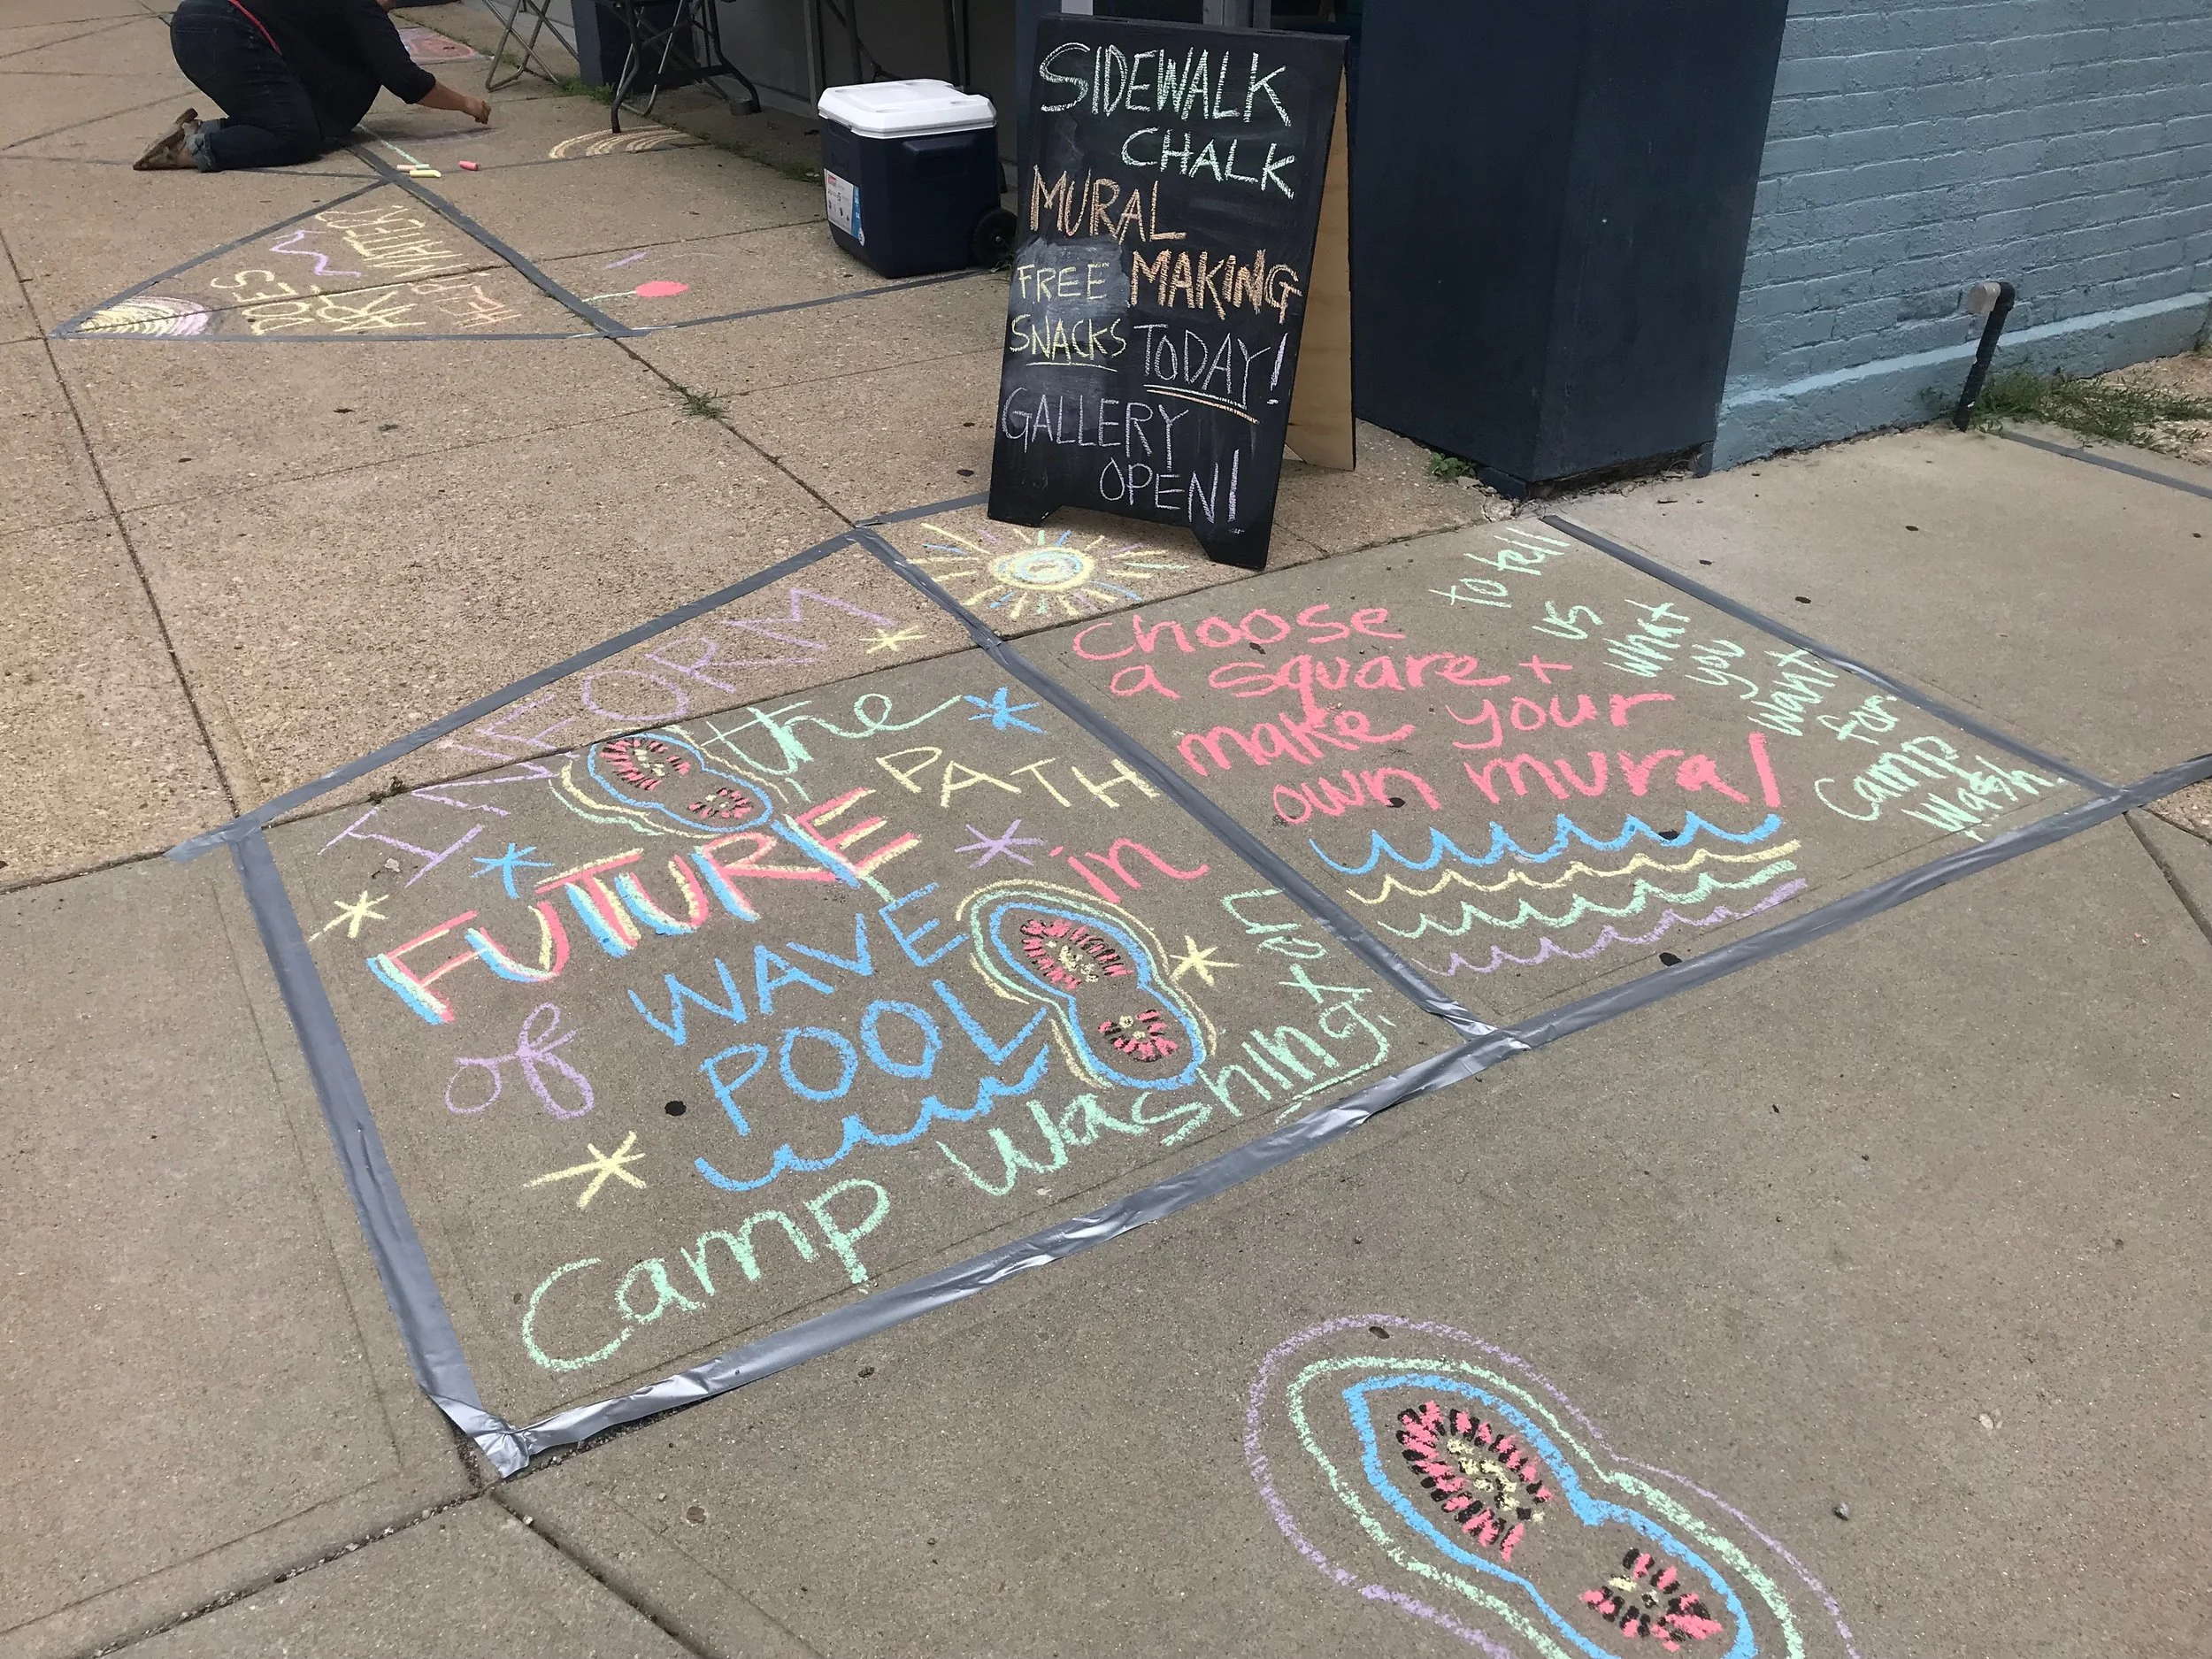 SIDEWALK
CHALK
MURAL
MAKING
FREE
SNACKS
TODAY!
GALLERY
OPEN!
INFORM
the
PATH
FUTURE
in
of
WAVE
POOL
Camp Washington
choose
a square +
make your
own mural
to tell
us
what
you
want
for
Camp
Wash.
DOES
ART
MATTER